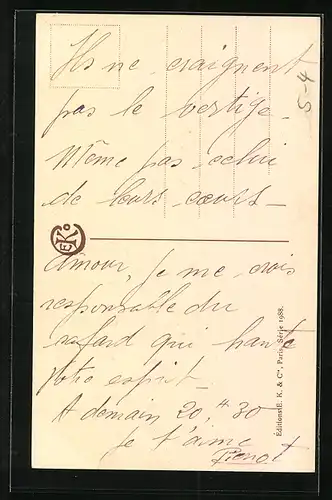 Ils ne craignent
pas le vertige
Même pas celui
de leurs cœurs_
Amour, je me crois
responsable du
cafard qui hante
votre esprit_
A demain 20, H 30
je t'aime
Pierrot
5-4
Editions E. K. & Cie, Paris, Série 1988.